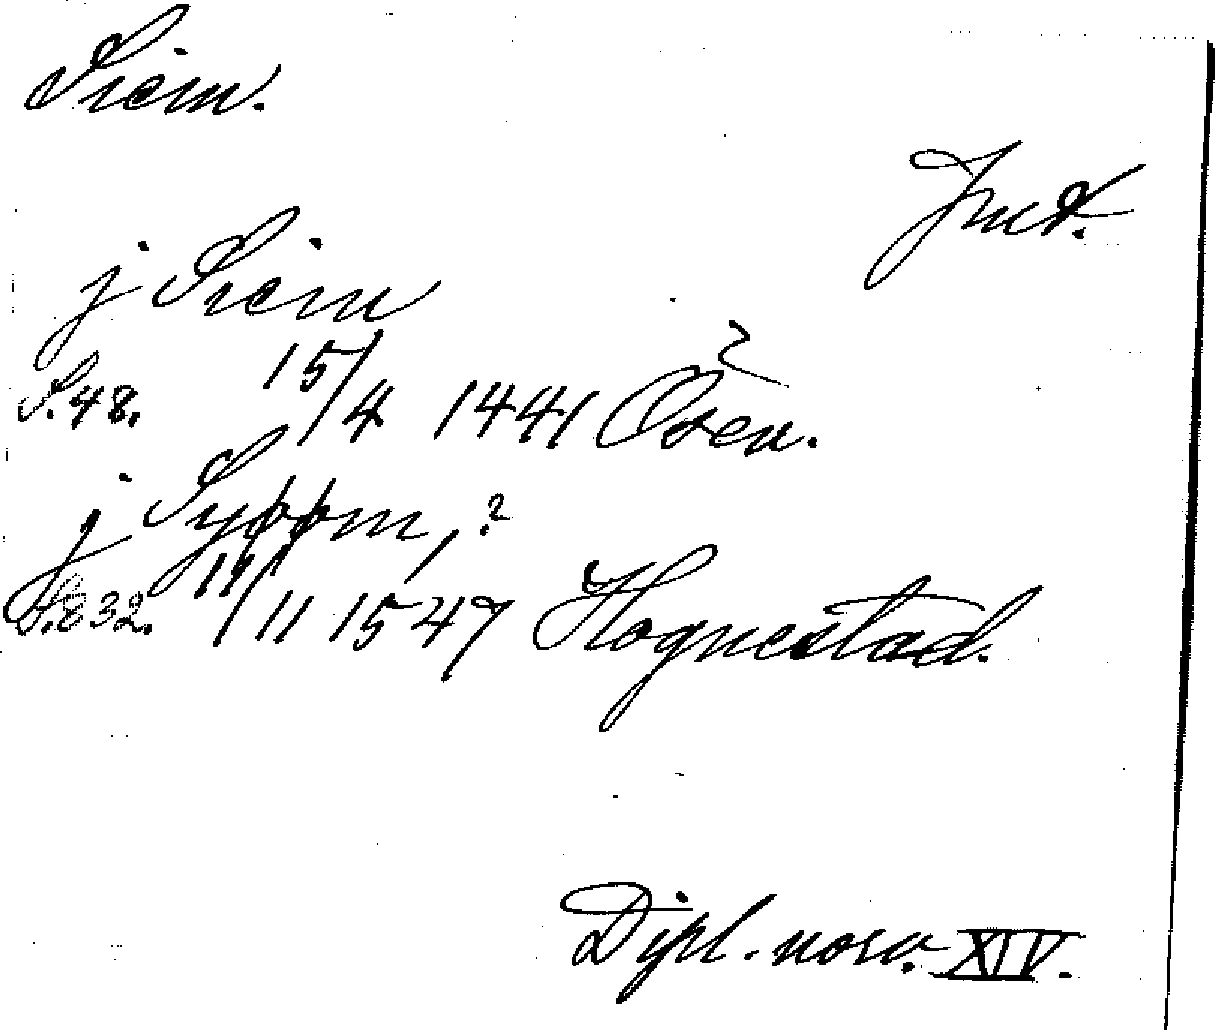 Siem.
Jmt.
j Siem
S.48. 15/4 1441 Osen. ?
j Syþþm, ?
S.832. 11/11 1547 Hognestad.
Dipl. norv. XIV.